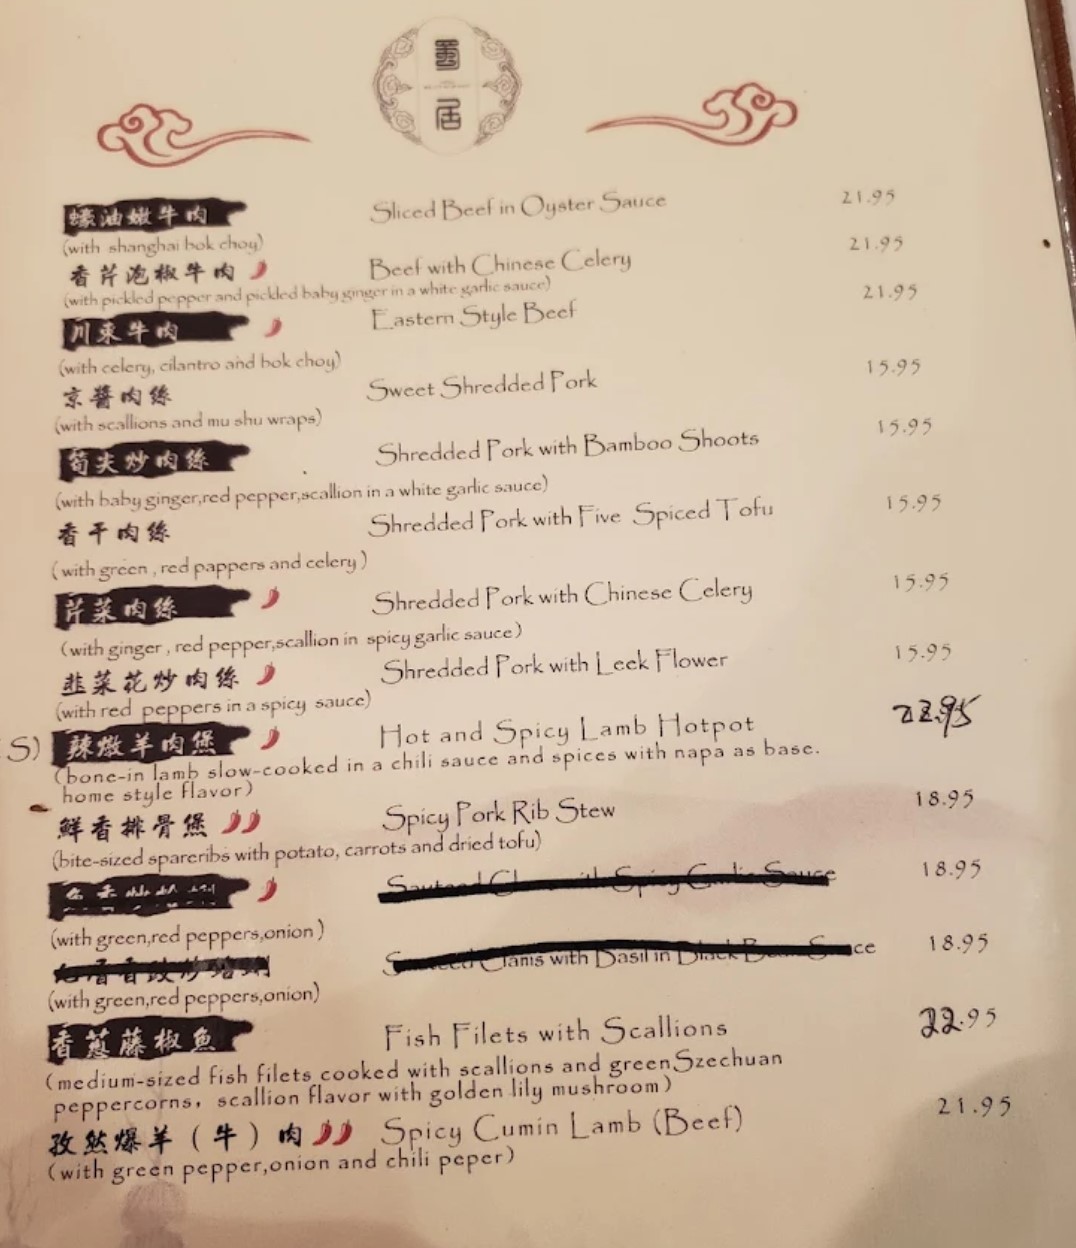 蜀
居
蠔油嫩牛肉 Sliced Beef in Oyster Sauce 21.95
(with shanghai bok choy)
香芹泡椒牛肉 Beef with Chinese Celery 21.95
(with pickled pepper and pickled baby ginger in a white garlic sauce)
川東牛肉 Eastern Style Beef 21.95
(with celery, cilantro and bok choy)
京醬肉絲 Sweet Shredded Pork 15.95
(with scallions and mu shu wraps)
筍尖炒肉絲 Shredded Pork with Bamboo Shoots 15.95
(with baby ginger,red pepper,scallion in a white garlic sauce)
香干肉絲 Shredded Pork with Five Spiced Tofu 15.95
(with green , red pappers and celery)
芹菜肉絲 Shredded Pork with Chinese Celery 15.95
(with ginger , red pepper,scallion in spicy garlic sauce)
韭菜花炒肉絲 Shredded Pork with Leek Flower 15.95
(with red peppers in a spicy sauce)
S) 辣燉羊肉煲 Hot and Spicy Lamb Hotpot 22.95
(bone-in lamb slow-cooked in a chili sauce and spices with napa as base.
home style flavor)
鮮香排骨煲 Spicy Pork Rib Stew 18.95
(bite-sized spareribs with potato, carrots and dried tofu)
Sauteed Clams with Spicy Garlic Sauce 18.95
(with green,red peppers,onion)
Sauteed Clams with Basil in Black Bean Sauce 18.95
(with green,red peppers,onion)
香蔥藤椒魚 Fish Filets with Scallions 22.95
(medium-sized fish filets cooked with scallions and greenSzechuan
peppercorns, scallion flavor with golden lily mushroom)
孜然爆羊(牛)肉 Spicy Cumin Lamb (Beef) 21.95
(with green pepper,onion and chili peper)